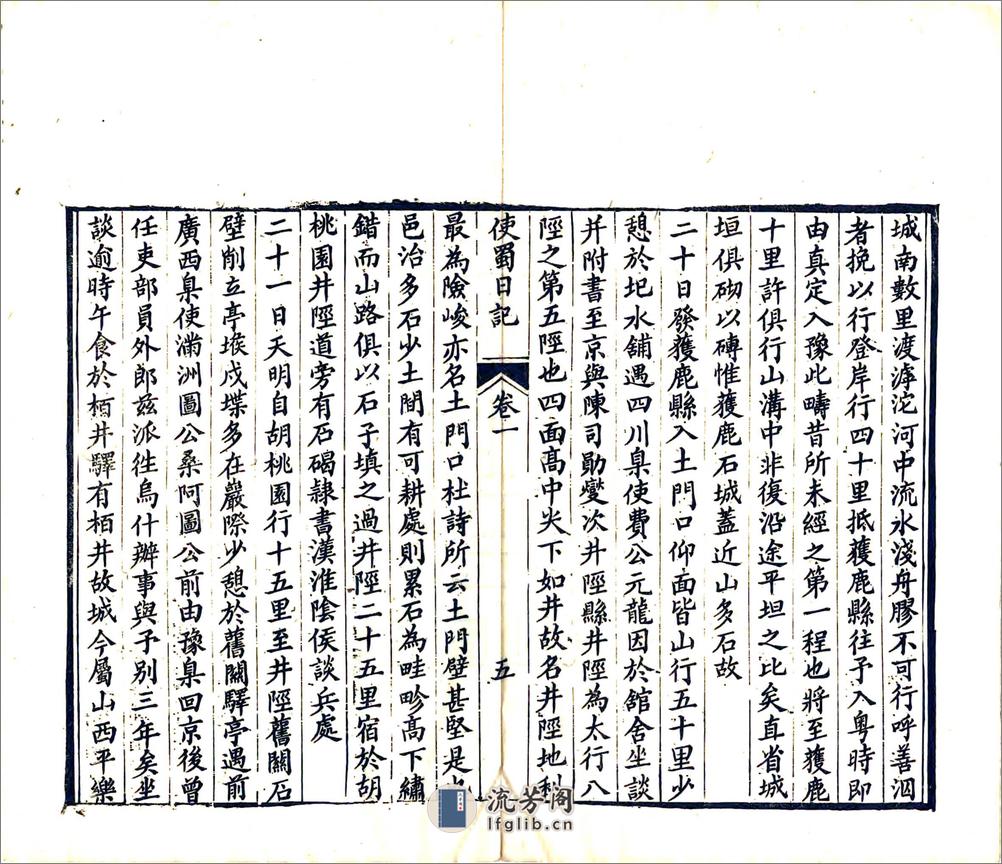 城南數里渡滹沱河中流水淺舟膠不可行呼善泅
者挽以行登岸行四十里抵獲鹿縣往予入粤時即
由真定入豫此疇昔所未經之第一程也將至獲鹿
十里許俱行山溝中非復沿途平坦之比矣直省城
垣俱砌以磚惟獲鹿石城蓋近山多石故
二十日發獲鹿縣入土門口仰面皆山行五十里少
憩於圯水舖遇四川臬使費公元龍因於舘舍坐談
并附書至京與陳司勛燮次井陘縣井陘為太行八
陘之第五陘也四面高中央下如井故名井陘地利
使蜀日記
卷一
五
最為險峻亦名土門口杜詩所云土門壁甚堅是也
邑治多石少土間有可耕處則累石為畦畛高下繡
錯而山路俱以石子填之過井陘二十五里宿於胡
桃園井陘道旁有石碣隸書漢淮陰侯談兵處
二十一日天明自胡桃園行十五里至井陘舊關石
壁削立亭堠戍堞多在巖際少憩於舊關驛亭遇前
廣西臬使滿洲圖公桑阿圖公前由豫臬回京後曾
任吏部員外郎兹派徃烏什辦事與予别三年矣坐
談逾時午食於栢井驛有栢井故城今屬山西平樂
流芳阁
lfglib.cn